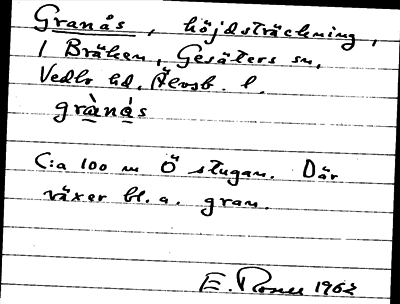 Granås, höjdsträckning,
/ Bräken, Gesäters sn,
Vedbo hd, Älvsb. l.
grànás
C:a 100 m Ö stugan. Där
växer bl. a. gran.
E. 1962